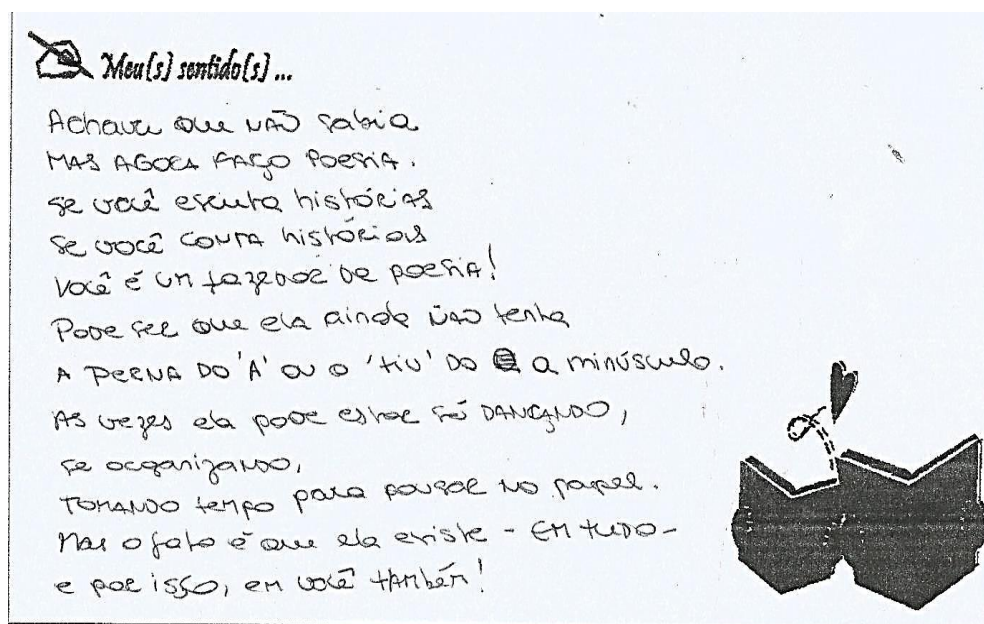 Meu(s) sentido(s)...
Achava que NÃO sabia
MAS AGORA FAÇO POESIA.
se você escuta histórias
se você CONTA histórias
Você é um fazedor de poesia!
Pode ser que ela ainda NÃO tenha
A PERNA DO 'A' OU O 'tiu' DO a minúsculo.
As vezes ela pode estar só DANÇANDO,
se organizando,
TOMANDO tempo para pousar no papel.
Mas o fato é que ela existe - EM TUDO -
e por isso, em você TAMBÉM!